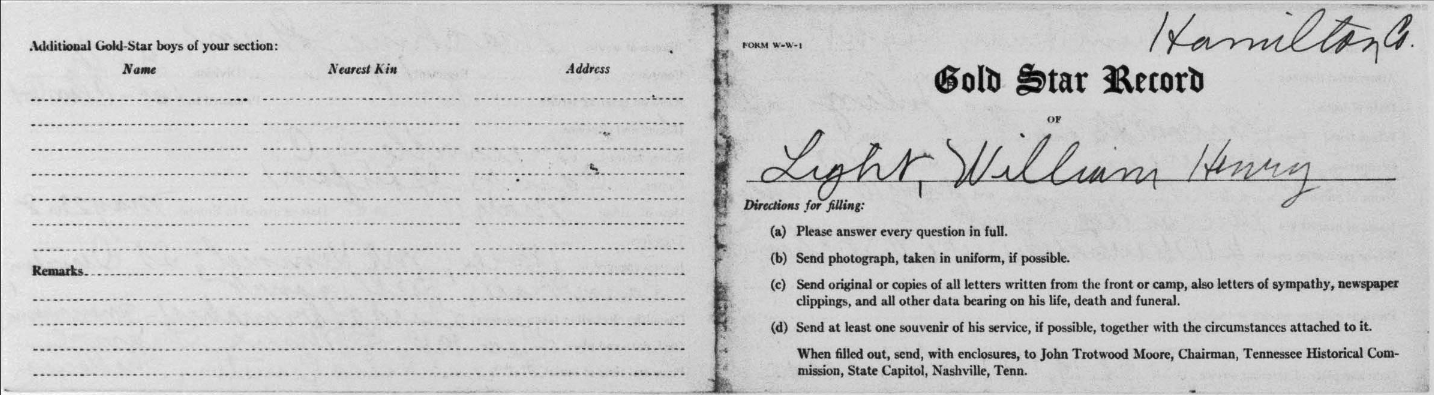 Additional Gold-Star boys of your section:
Name Nearest Kin Address
Remarks
Hamilton Co.
FORM W-W-1
Gold Star Record
OF
Light, William Henry
Directions for filling:
(a) Please answer every question in full.
(b) Send photograph, taken in uniform, if possible.
(c) Send original or copies of all letters written from the front or camp, also letters of sympathy, newspaper
clippings, and all other data bearing on his life, death and funeral.
(d) Send at least one souvenir of his service, if possible, together with the circumstances attached to it.
When filled out, send, with enclosures, to John Trotwood Moore, Chairman, Tennessee Historical Com-
mission, State Capitol, Nashville, Tenn.